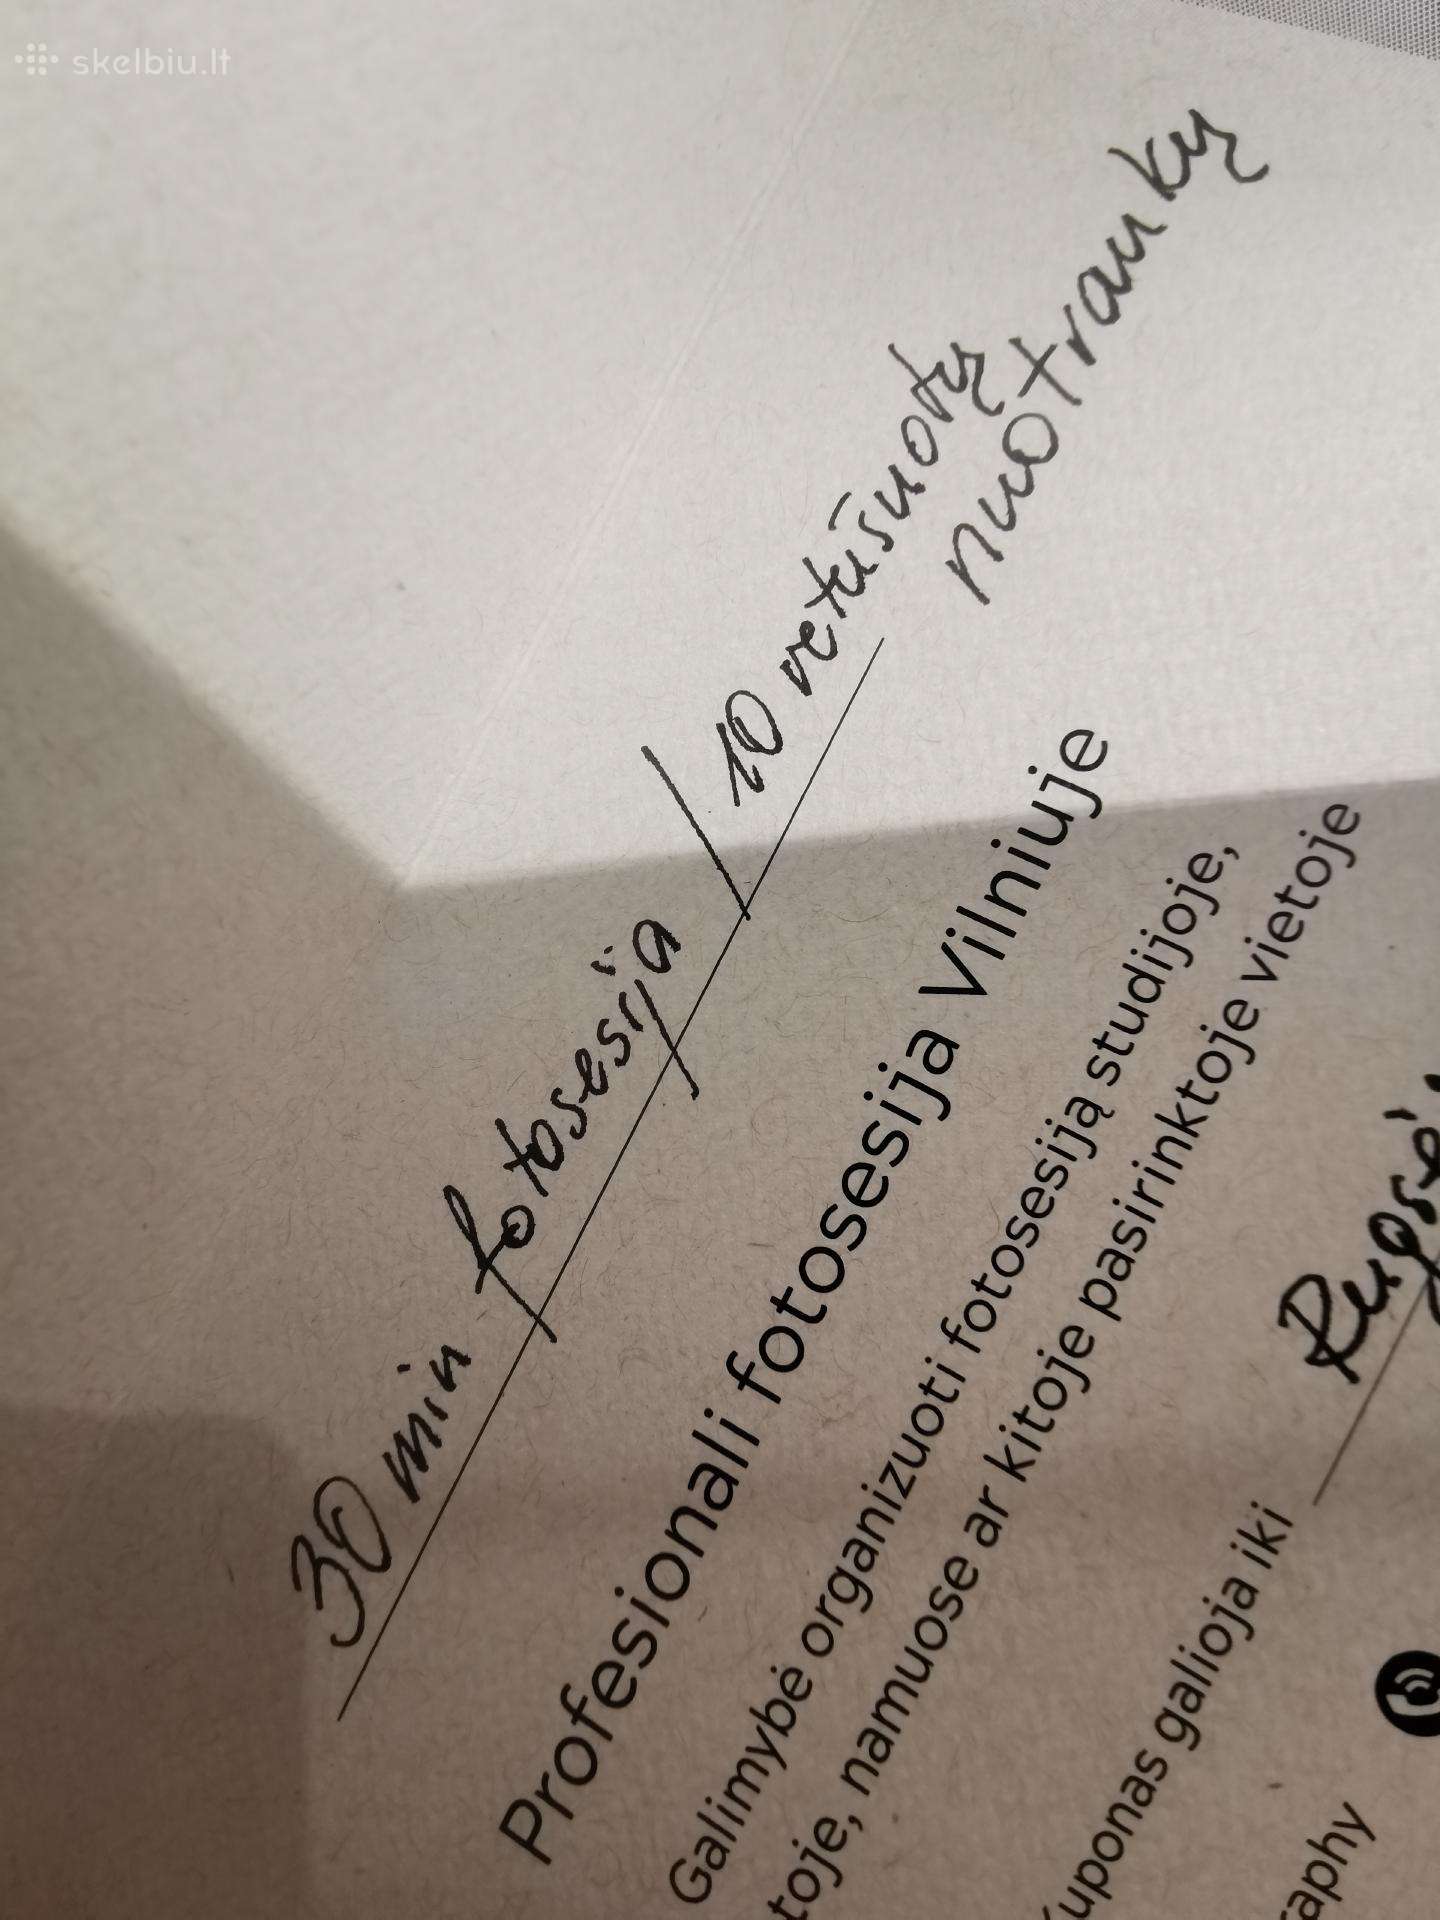 skelbiu.lt
30 min fotosesija / 10 retušuotų
nuotraukų
Profesionali fotosesija Vilniuje
Galimybė organizuoti fotosesiją studijoje,
toje, namuose ar kitoje pasirinktoje vietoje
Kuponas galioja iki
raphy